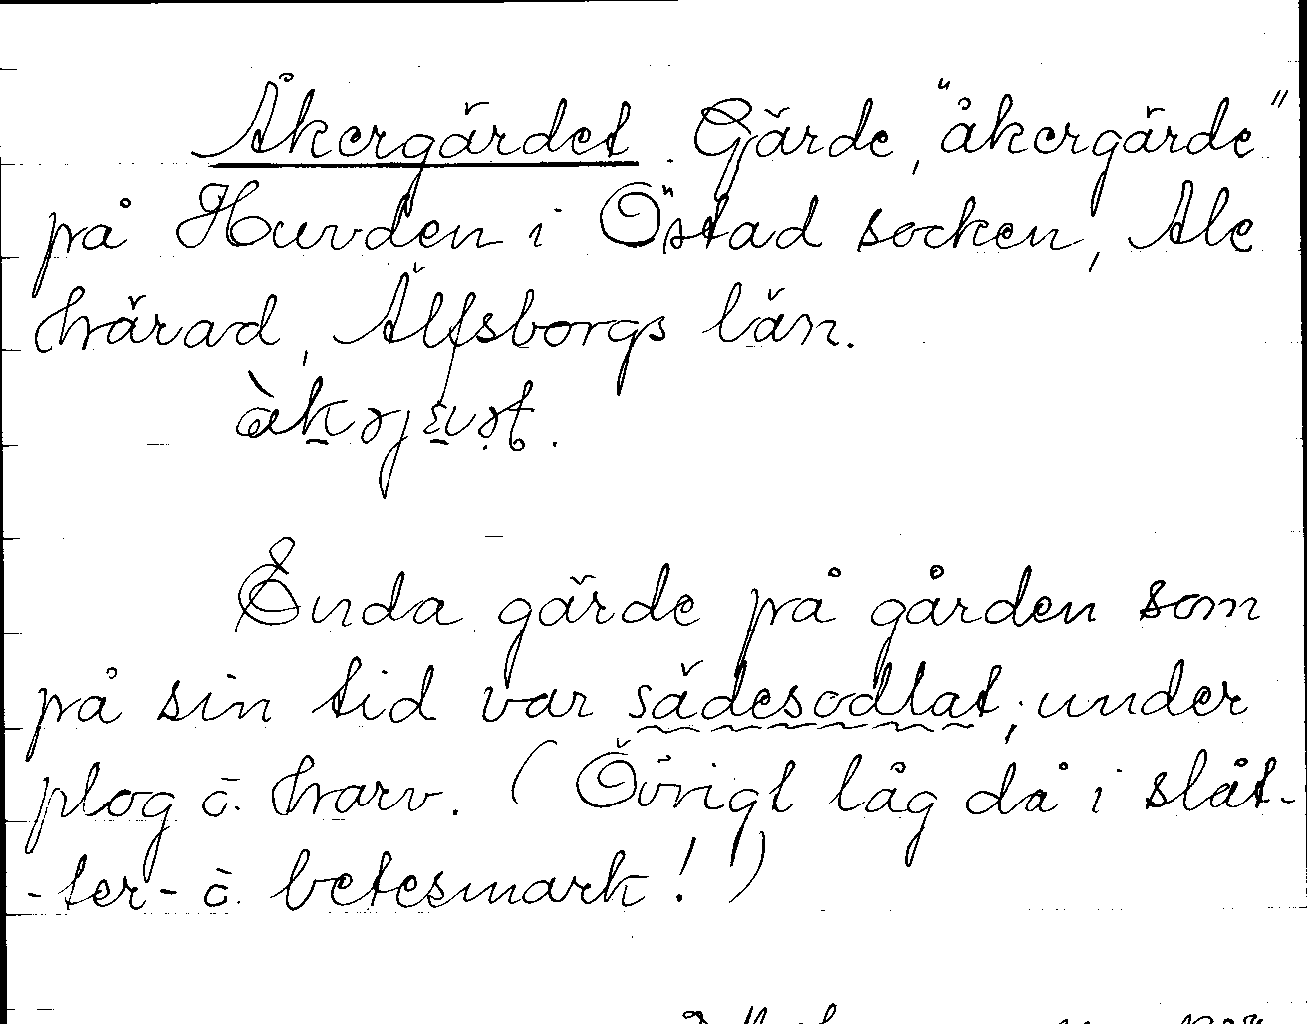 Åkergärdet. Gärde, "åkergärde"
på Huvden i Östad socken, Ale
härad, Älfsborgs län.
Enda gärde på gården som
på sin tid var sädesodlat; under
plog o. harv. (Övrigt låg då i slåt-
-ter- o. betesmark!)